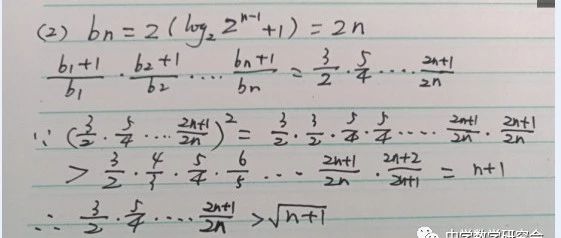 (2) bn = 2 ( log₂ 2ⁿ⁻¹ + 1 ) = 2n
(b₁+1)/b₁ · (b₂+1)/b₂ ···· (bn+1)/bn = 3/2 · 5/4 ···· (2n+1)/2n
∵ (3/2 · 5/4 ···· (2n+1)/2n)² = 3/2 · 3/2 · 5/4 · 5/4 ···· (2n+1)/2n · (2n+1)/2n
> 3/2 · 4/3 · 5/4 · 6/5 ··· (2n+1)/2n · (2n+2)/(2n+1) = n+1
∴ 3/2 · 5/4 ···· (2n+1)/2n > √(n+1)
中学数学研究会